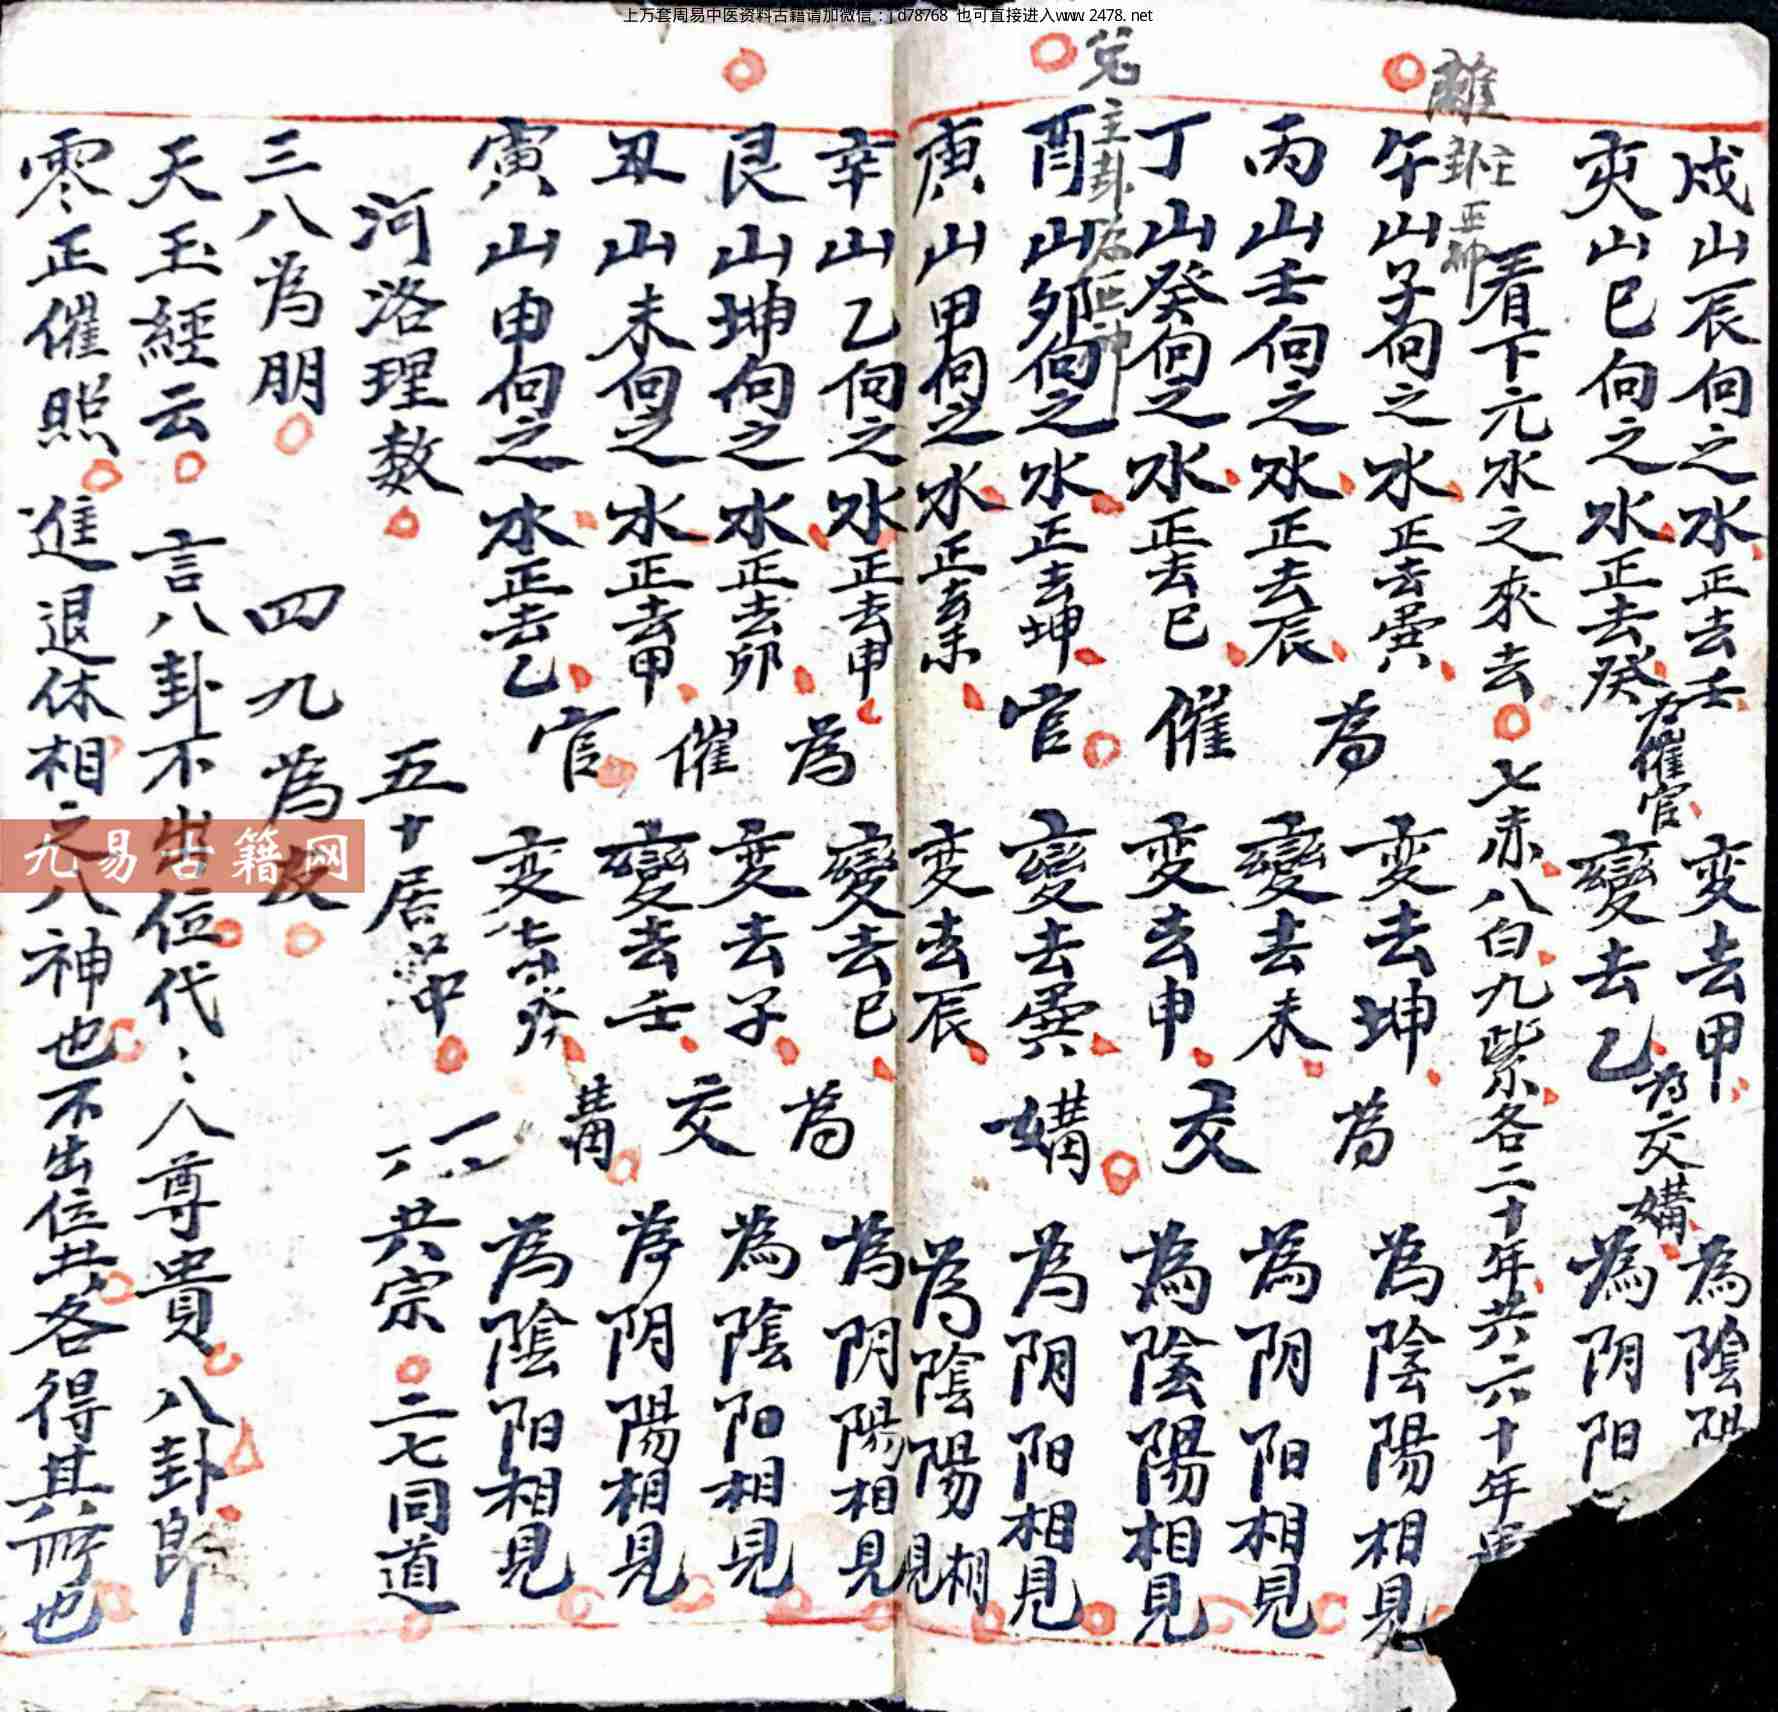 上万套周易中医资料古籍请加微信：jd78768 也可直接进入www.2478.net
戌山辰向之水正去壬 変去甲 為陰陽
亥山巳向之水正去癸 變去乙 為阴阳
為催官 為交媾
看下元水之來去 七赤八白九紫各二十年共六十年
離卦主正神
午山子向之水正去巽 変去坤 為陰陽相見
丙山壬向之水正去辰 變去未 為阴阳相見
丁山癸向之水正去巳 变去申 為陰陽相見
兌主卦為正神
酉山卯向之水正去坤 變去巽 為阴阳相見
庚山甲向之水正去未 变去辰 為陰陽相見
為催官 為交媾
辛山乙向之水正去申 變去巳 為阴陽相見
艮山坤向之水正去卯 变去子 為陰阳相見
丑山未向之水正去甲 變去壬 為阴陽相見
寅山申向之水正去乙 变去癸 為陰阳相見
為催官 為交媾
河洛理数 五十居中 一六共宗 二七同道
三八為朋 四九為友
天玉經云 言八卦不出位代〻人尊貴 八卦即
零正催照 進退休相之八神也不出位共各得其所也
九易古籍网